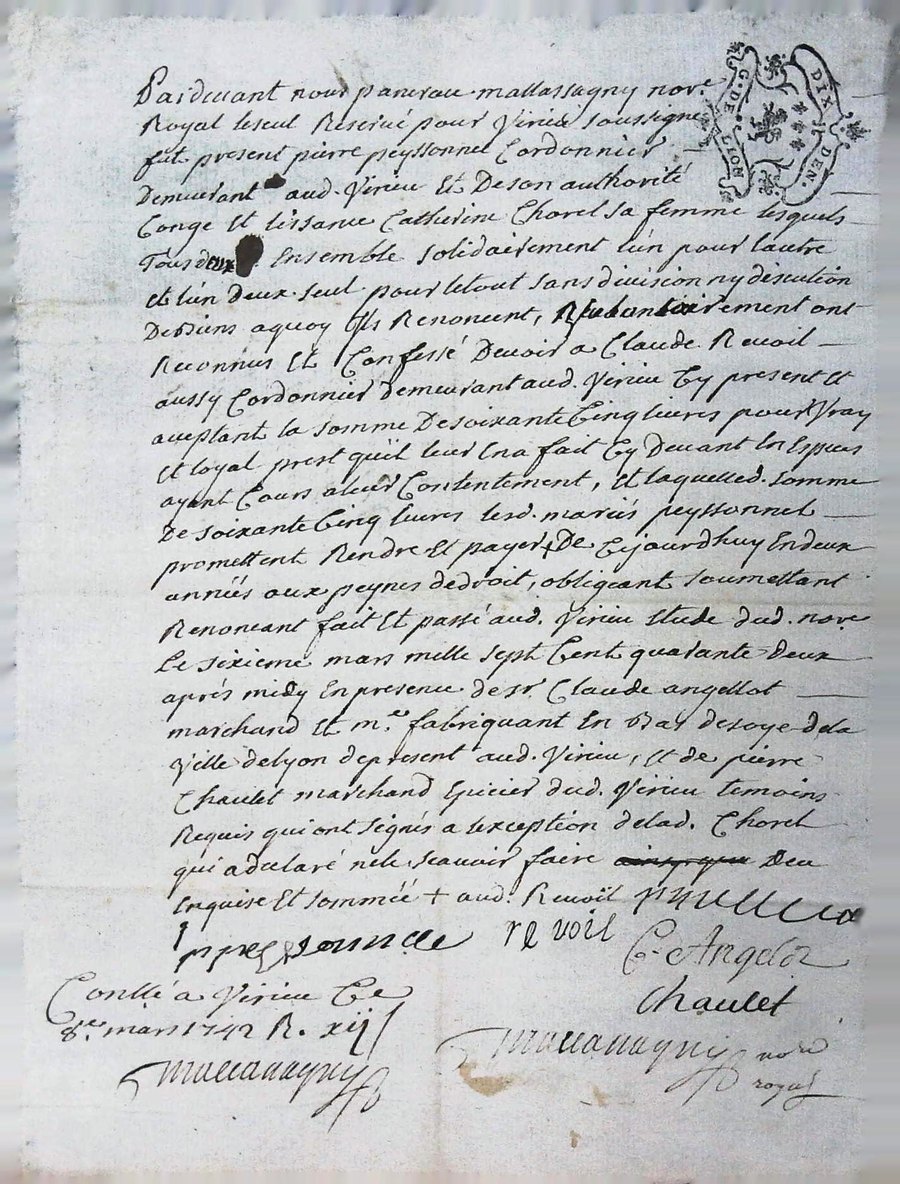 Pardevant nous pancrace mallassagny nore.
Royal Reservé pour Virieu soussigné
fut present pierre peyssonnel Cordonnier
Demeurant aud. Virieu Et De son authorité
Conge Et Catherine Chorel sa femme lesquels
Tous deux Ensemble solidairement l'un pour lautre
Et l'un Deux seul pour letout sans division ny discution
De Biens aquoy ils Renoncent, ont
Reconnus Et Confessé Devoir a Claude Revoil
aussy Cordonnier demeurant aud. Virieu Cy present Et
aceptant la somme De soixante Cinq livres pour Vray
Et loyal prest qu'il leur En a fait Cy Devant En Espèces
ayant Cours a leur Contentement, Et laquelled. somme
De soixante Cinq livres lesd. mariés peyssonnel
promettent Rendre Et payer De Cejourdhuy En deux
années aux peynes dedroit, obligeant soumettant
Renonçant fait Et passé aud. Virieu Etude dud. nore
Le sixieme mars mille sept Cent quarante Deux
aprés midy En presence de sr. Claude angellot
marchand Et me. fabriquant En Bas de soye dela
Ville de lyon de present aud. Virieu, Et de pierre
Chaulet marchand Epicier dud. Virieu temoins
Requis qui ont signés a lexception delad. Chorel
qui a declaré ne le scavoir faire De ce
Enquise Et sommée + aud. Revoil
revoil
C. Angelot
Chaulet
Conllé a Virieu Ce
8e. mars 1742 R. xij s
nore
royal
G. DE LION
DIX DEN.